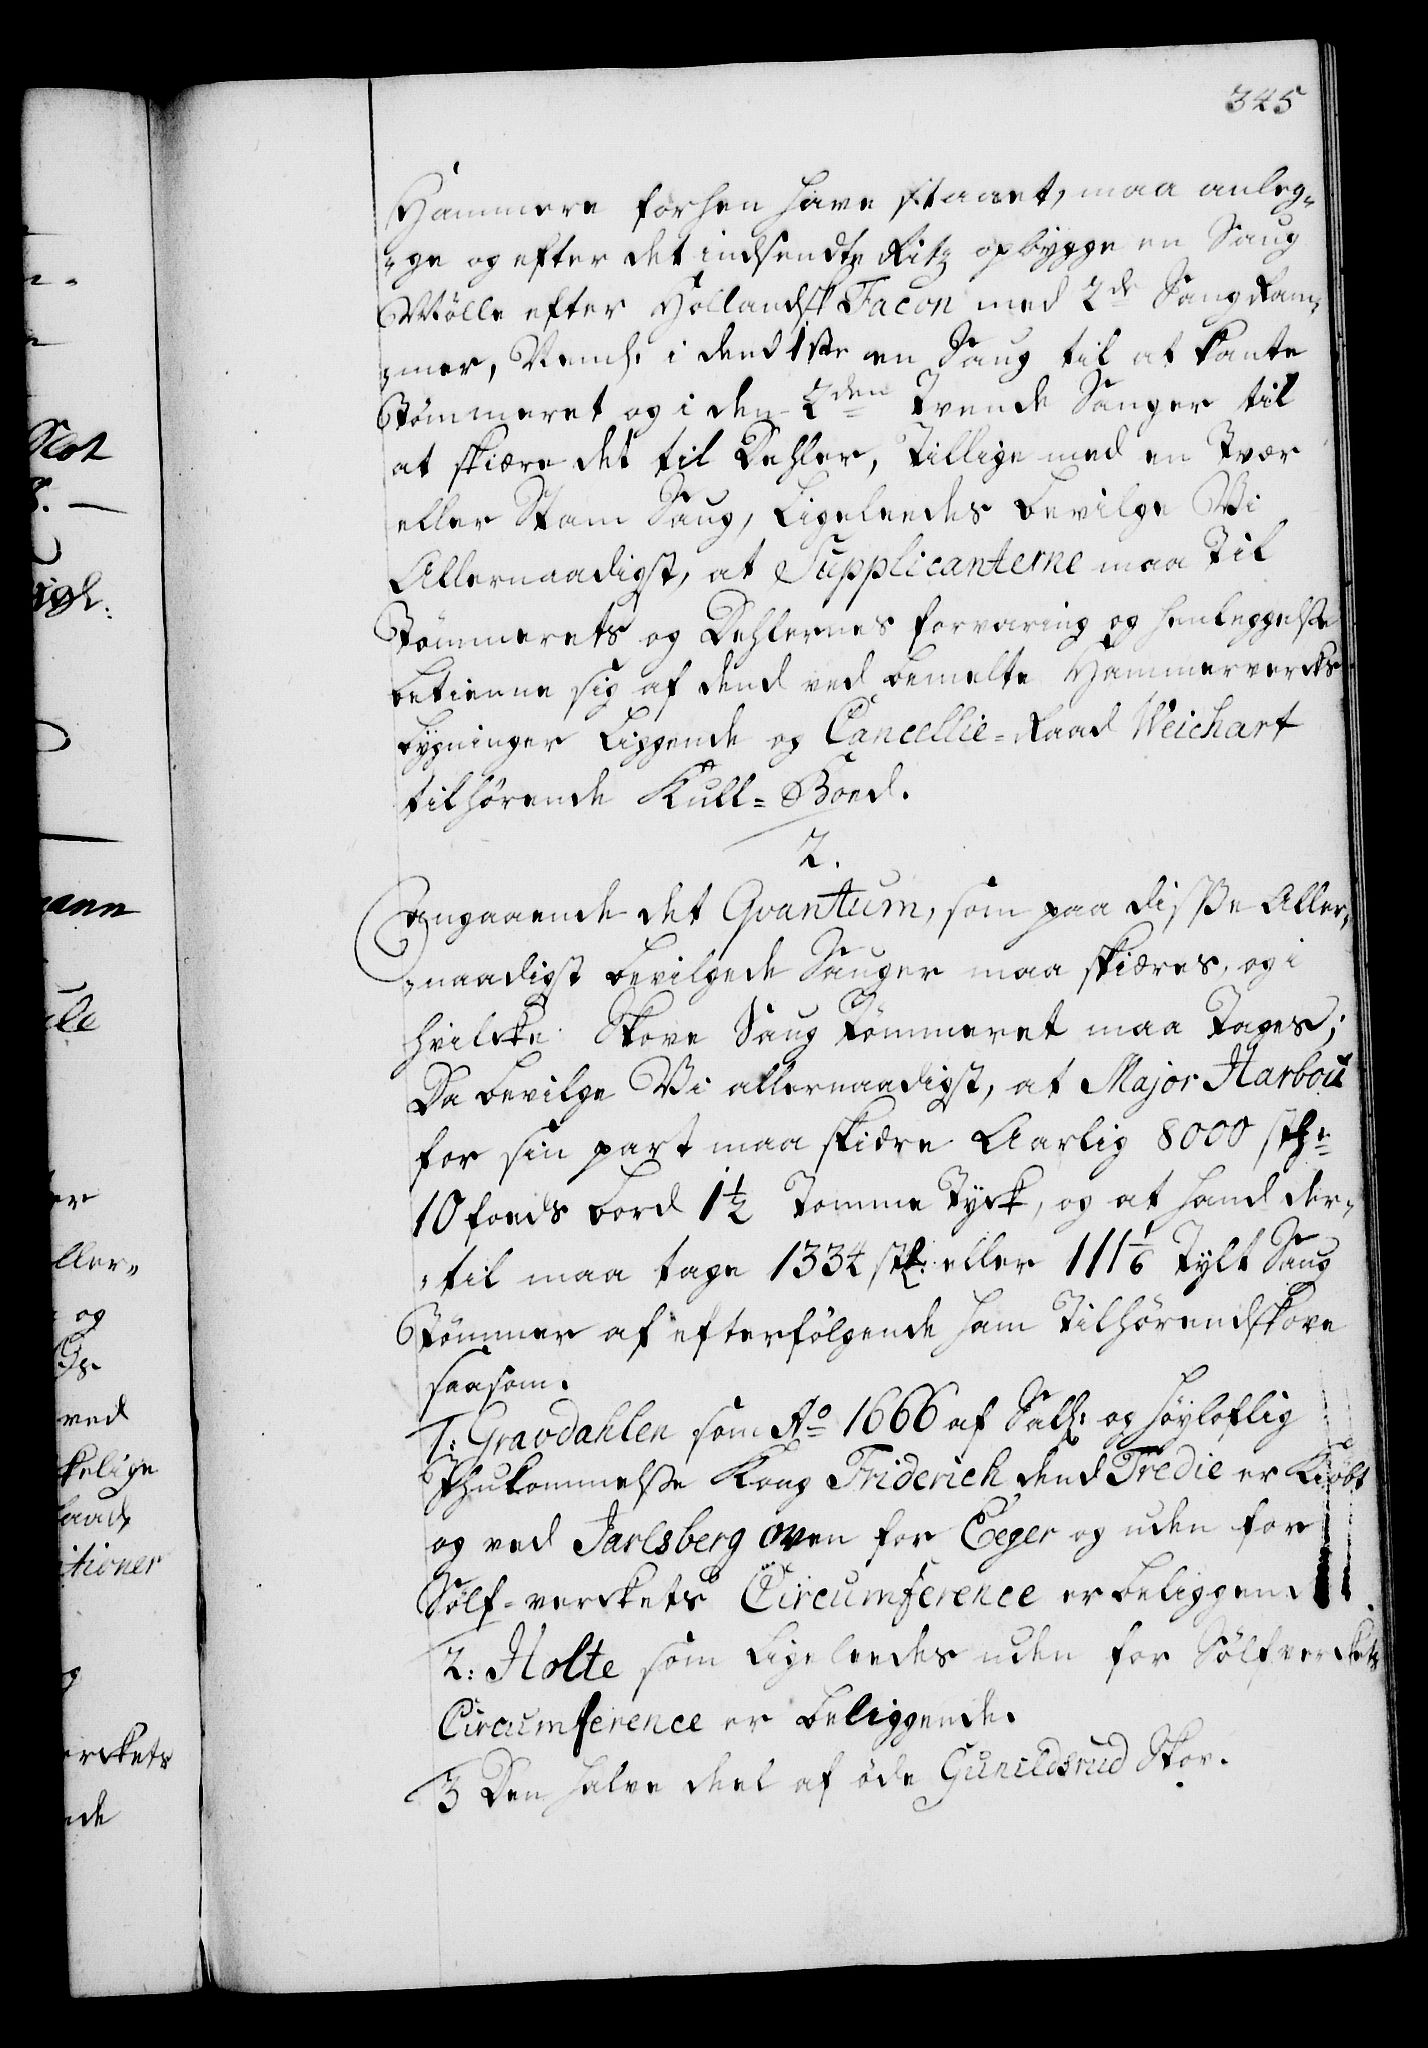 345
Hammere forhen have staaet, maa anleg-
-ge og efter det indsendte Ritz opbygge en Saug
Mölle efter Hollandsk Facon med 2de Saug Ram-
-mer, Neml: i dend 1ste en Saug til at kante
Tömmeret og i den 2den Tvende Sauger til
at skiære det til Dehler, Tillige med en Tvær
eller Stam Saug, Ligeleedes bevilge Vi
Allernaadigst, at Supplicanterne maa Til
Tömmerets og Dehlernes forvaring og henleggelse
betienne sig af dend ved bemelte Hammerverks
bygninger Liggende og Cancellie-Raad Weichart
tilhørende Kull-Boed.
2.
Angaaende det Qvantum, som paa disse Aller-
-naadigst bevilgede Sauger maa skiæres, og i
hvilcke Skove Saug Tömmeret maa Tages;
Da bevilge Vi allernaadigst, at Major Harbou
for sin part maa skiære Aarlig 8000 stk:
10 foeds bord 1½ Tomme Tyck, og at hand der-
-til maa tage 1334 stk: eller 111 1/6 Tylt Saug
Tömmer af efterfölgende ham Tilhörend skove
saasom.
1: Gravdahlen som Ao 1666 af Salh: og höyloflig
Ihukommelse Kong Friderich dend Tredie er Kiøbt
og ved Jarlsberg oven for Eeger og uden for
Sölf-verckets Circumference er beliggend
2: Holte som Ligeleedes uden for Sölfverckets
Circumference er beliggende.
3 Den halve deel af öde Gunildsrud Skov.
Slot
mann
ller-
og
ved
kelige
Raad
itioner
erckets
nde